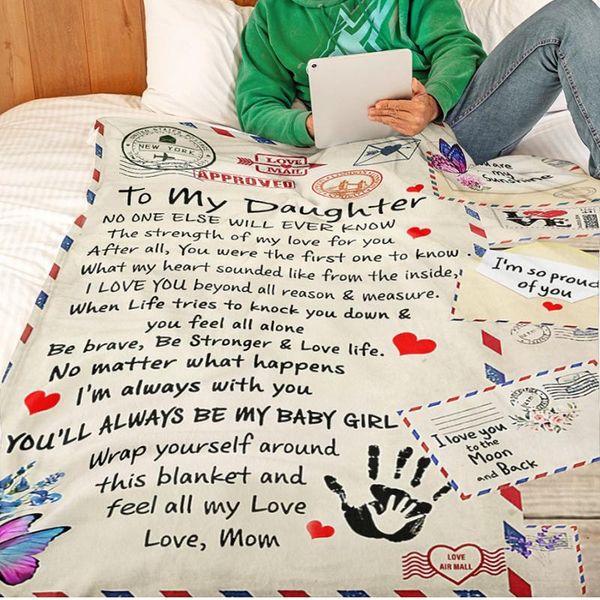 NEW YORK
LOVE
MAIL
APPROVED
To My Daughter
NO ONE ELSE WILL EVER KNOW
The strength of my love for you
After all, You were the first one to know .
What my heart sounded like from the inside,
I LOVE YOU beyond all reason & measure.
When Life tries to knock you down &
you feel all alone
Be brave, Be Stronger & Love life.
No matter what happens
I'm always with you
YOU'LL ALWAYS BE MY BABY GIRL
Wrap yourself around
this blanket and
feel all my Love
Love, Mom
are my
Sunshine
LOVE
I'm so proud
of you
I love you
to the
Moon
and Back
LOVE
AIR MALL